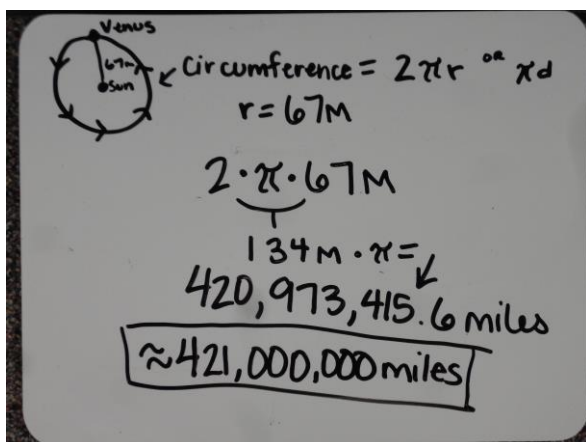 Venus
67m
Sun
Circumference = 2πr OR πd
r = 67M
2·π·67M
134M·π=
420,973,415.6 miles
≈421,000,000 miles